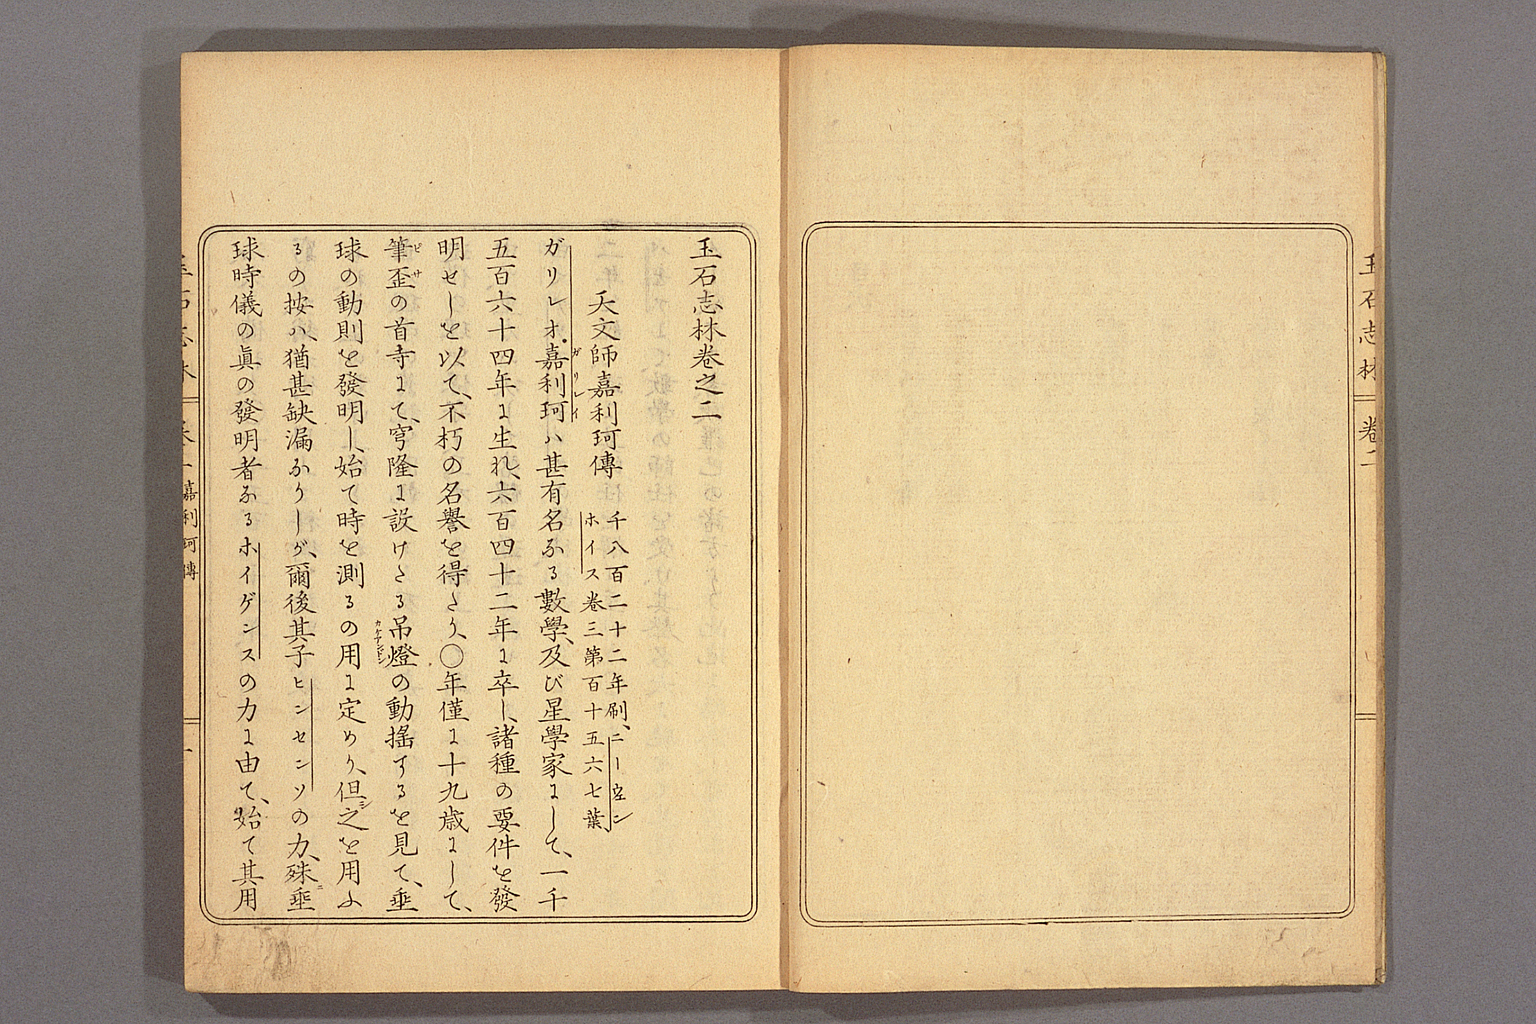 玉石志林
卷二
玉石志林卷之二
天文師嘉利珂傳
千八百二十二年刷、ニーウエン
ホイス卷三第百十五六七葉
ガリレオ嘉利珂ハ甚有名なる數學、及び星學家にして、一千
五百六十四年に生れ、六百四十二年に卒し、諸種の要件を發
明せしを以て、不朽の名譽を得たり、〇年僅に十九歳にして、
筆歪の首寺にて、穹隆に設けたる吊燈の動搖するを見て、垂
球の動則を發明し、始て時を測るの用に定めり、但之を用ふ
るの按ハ、猶甚缺漏ありしが、爾後其子ヒンセンソの力、殊垂
球時儀の眞の發明者なるホイゲンスの力に由て、始て其用
玉石志林
嘉利珂傳